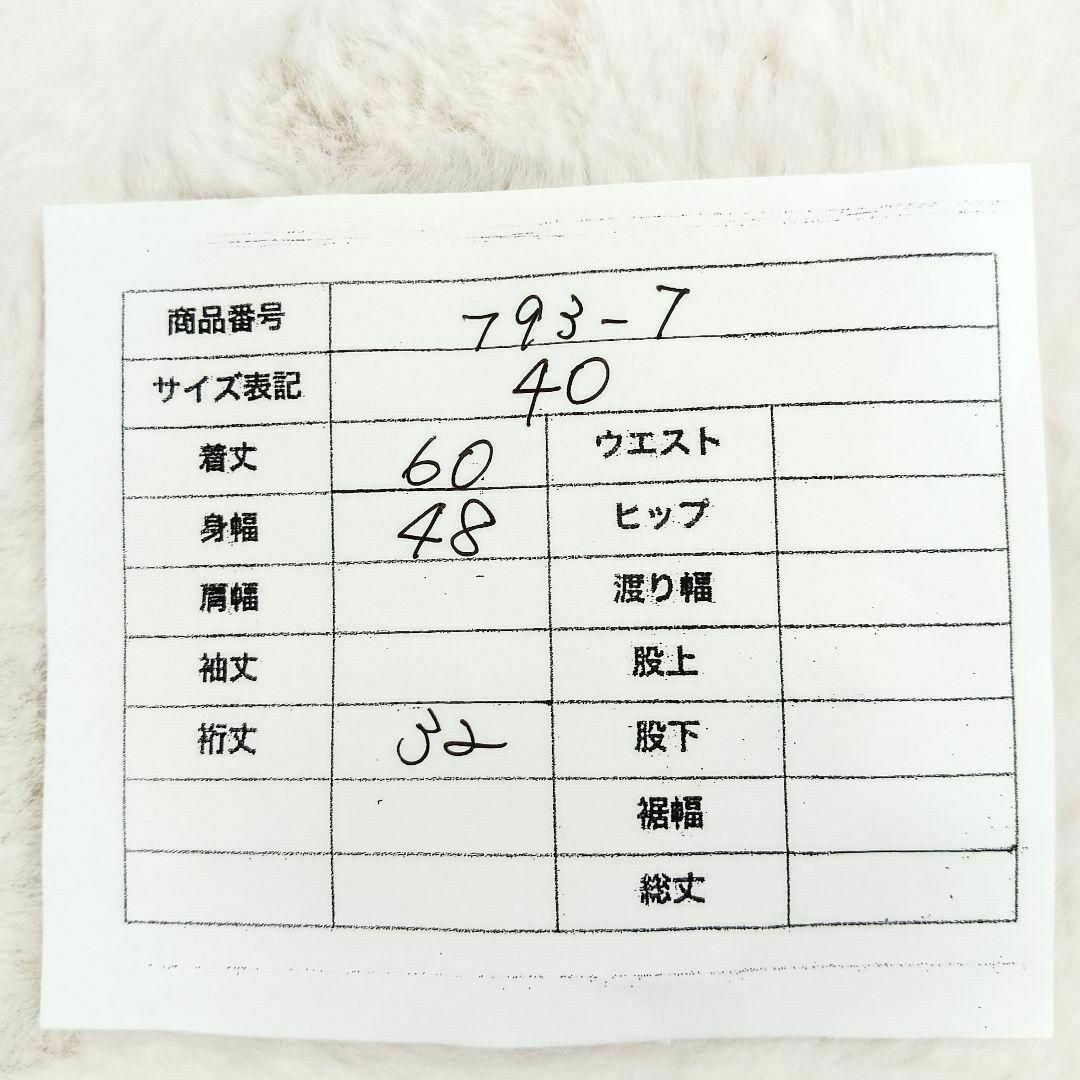 商品番号 793-7
サイズ表記 40
着丈 60 ウエスト
身幅 48 ヒップ
肩幅 渡り幅
袖丈 股上
裄丈 32 股下
裾幅
総丈